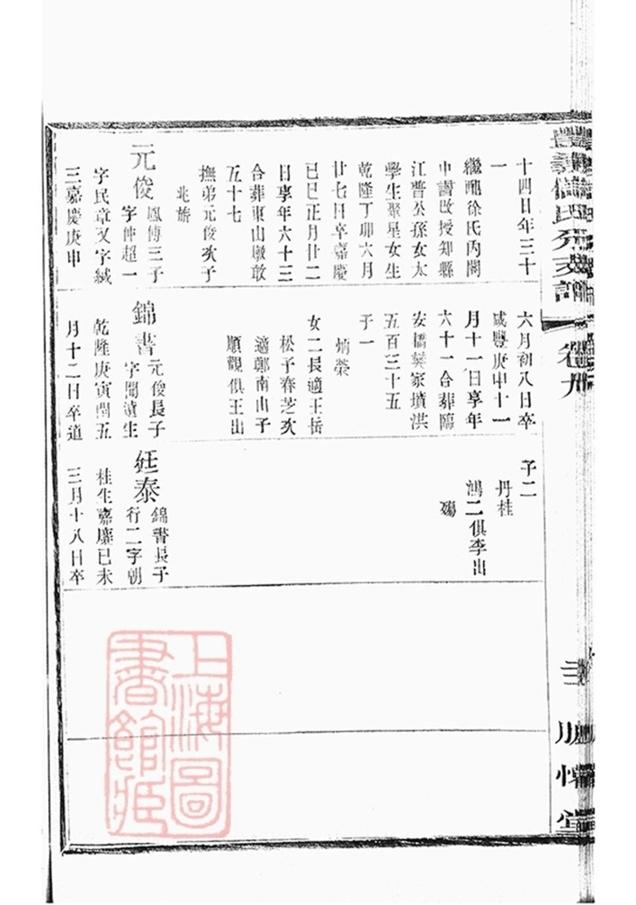 十四日年三十
一
繼配徐氏內閣
中書改授知縣
江普公孫女太
學生聚星女生
乾隆丁卯六月
廿七日卒嘉慶
己巳正月廿二
日享年六十三
合葬東山墩敢
五十七
撫弟元俊次子
兆旂
元俊
鳳傳三子
字仲超一
字民章又字絨
三嘉慶庚申
六月初八日卒
咸豐庚申十一
月十一日享年
六十一合葬臨
安橋樊家墳洪
五百三十五
子一
炳榮
女二長適王岳
松子春芝次
適鄭南山子
順觀俱王出
錦書
元俊長子
字聞瀆生
乾隆庚寅閏五
月十二日卒道
子二
丹桂
鴻二俱李出
殤
廷泰
錦書長子
行二字朝
桂生嘉慶己未
三月十八日卒
卷九
上海圖
書館藏